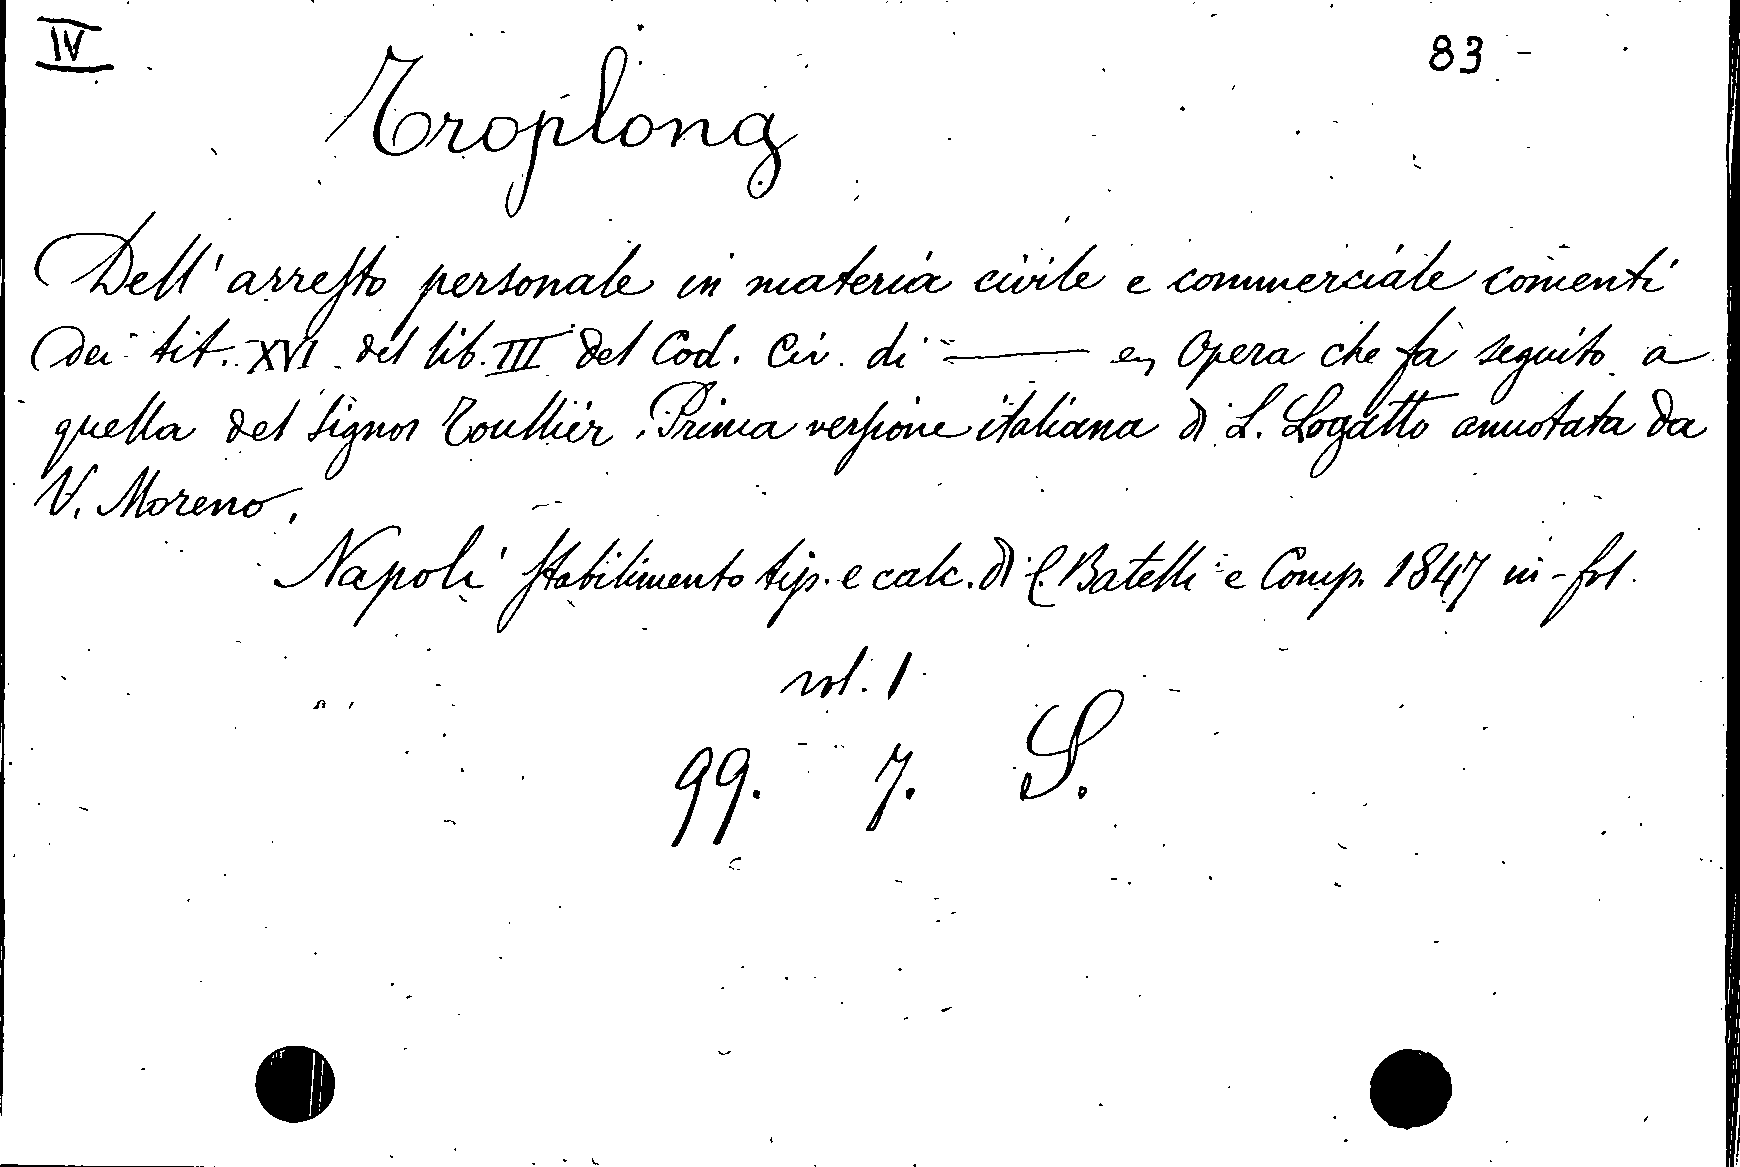 IV
83
Troplong
Dell'arresto personale in materia civile e commerciale comenti
dei tit. XVI del lib. III del Cod. Civ. di ——— Opera che fa seguito a
quella del signor Toullier. Prima versione italiana di L. Logatto annotata da
V. Moreno.
Napoli Stabilimento tip. e calc. di C. Batelli e Comp. 1847 in-fol.
vol. 1
99. 7. S.